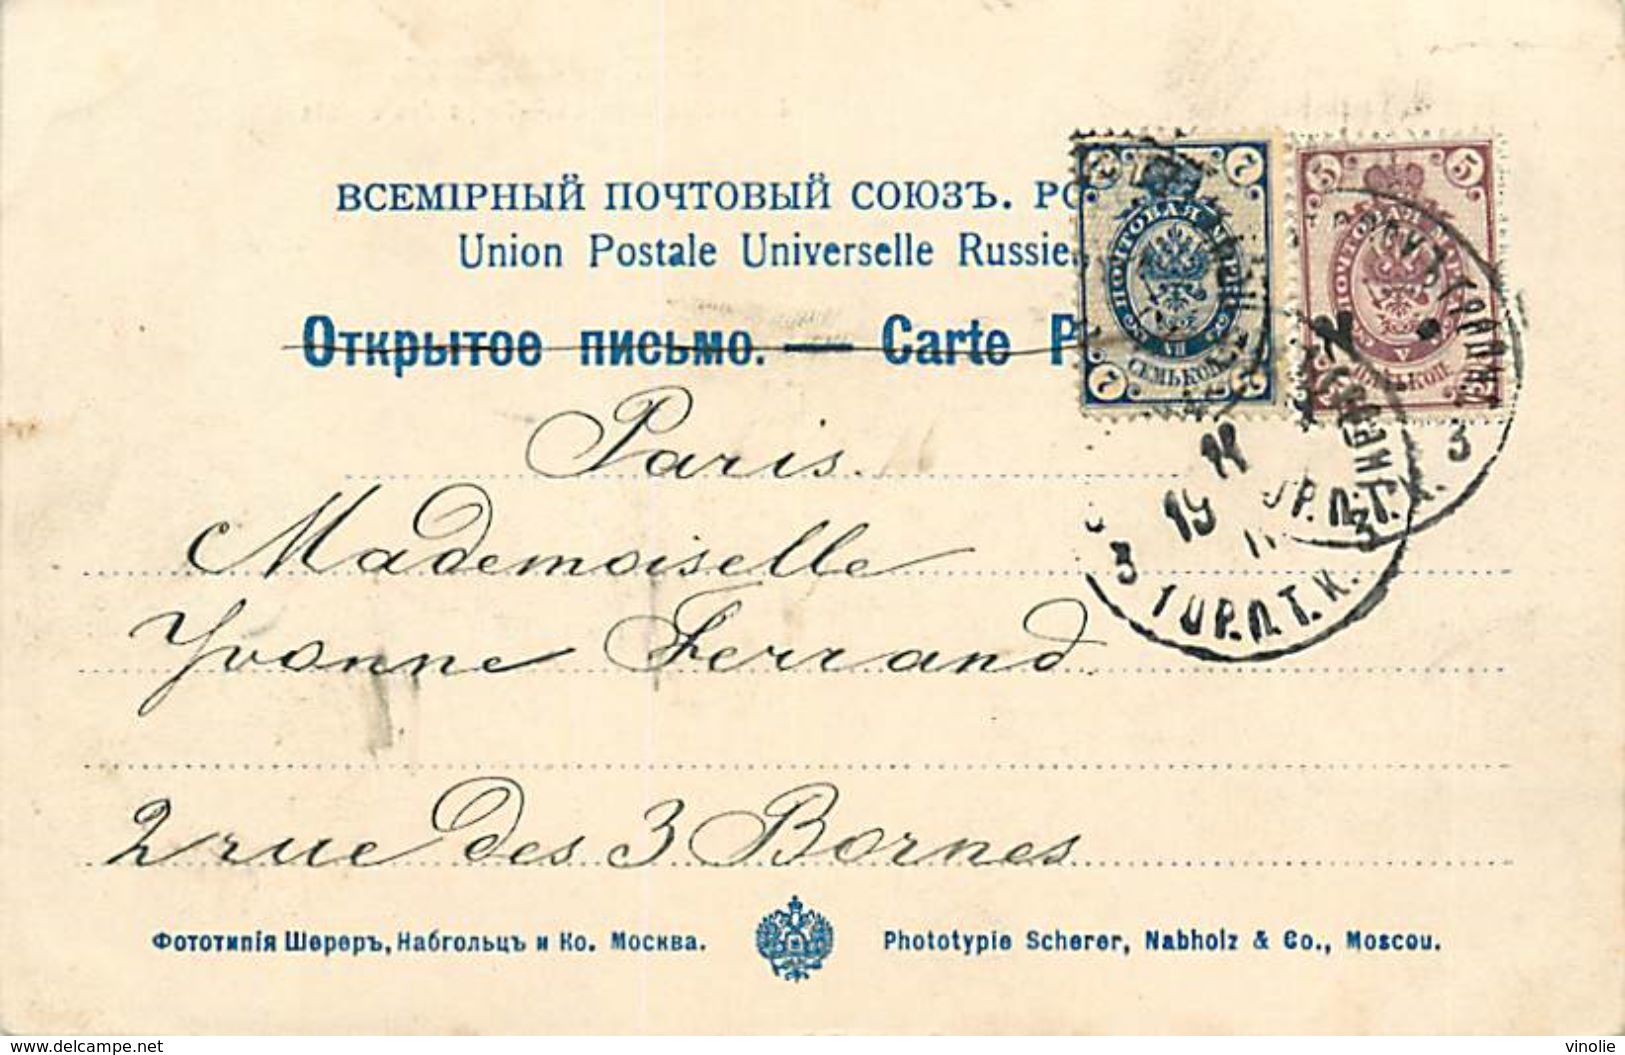 ВСЕМІРНЫЙ ПОЧТОВЫЙ СОЮЗЪ. РО
Union Postale Universelle Russie.
Открытое письмо. — Carte P
7 7
ПОЧТОВАЯ МАРКА
VII
СЕМЬ КОП.
7 7
5 5
ПОЧТОВАЯ МАРКА
V
ПЯТЬ КОП.
Paris.
Mademoiselle
Yvonne Ferrand
2 rue des 3 Bornes
19
3 ГОР.П.Т.К. 3
Фототипія Шереръ, Набгольцъ и Ко. Москва.
Phototypie Scherer, Nabholz & Co., Moscou.
delcampe.net
vinolie